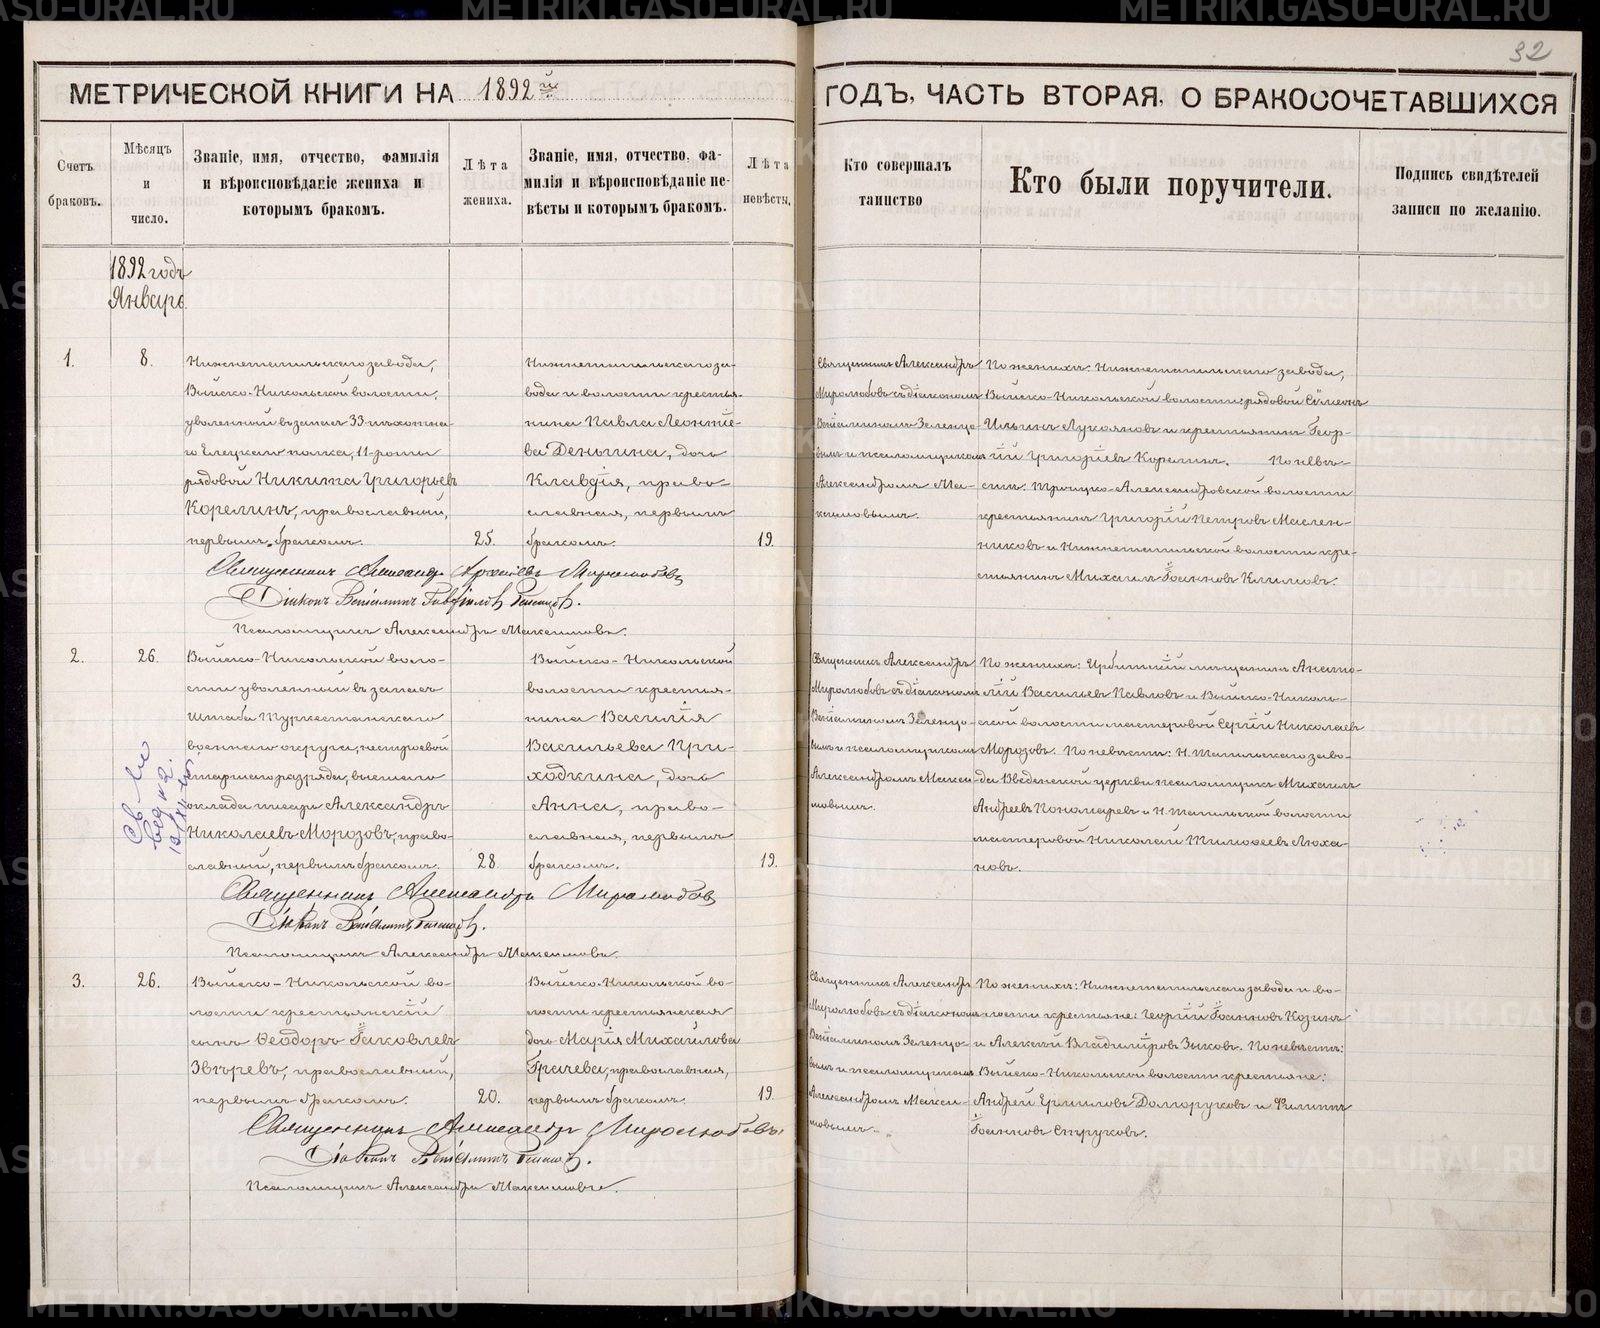 32
МЕТРИЧЕСКОЙ КНИГИ НА 1892 й
ГОДЪ, ЧАСТЬ ВТОРАЯ, О БРАКОСОЧЕТАВШИХСЯ
Счетъ
браковъ.
Мѣсяцъ
и
число.
Званіе, имя, отчество, фамилія
и вѣроисповѣданіе жениха и
которымъ бракомъ.
Лѣта
жениха.
Званіе, имя, отчество, фа-
милія и вѣроисповѣданіе не-
вѣсты и которымъ бракомъ.
Лѣта
невѣсты.
Кто совершалъ
таинство
Кто были поручители.
Подпись свидѣтелей
записи по желанію.
1892 годъ
Январь.
1.
8.
Нижнетагильскаго завода,
Выйско-Никольской волости,
уволенный въ запасъ 33 пѣхотна-
го Елецкаго полка, 11-роты
рядовой Никита Григорьевъ
Корелинъ, православный,
первымъ бракомъ.
25.
Нижнетагильскаго за-
вода и волости крестья-
нина Павла Леонтіе-
ва Деньгина, дочь
Клавдія, право-
славная, первымъ
бракомъ.
19.
Священникъ Александръ
Миролюбовъ съ діакономъ
Веніаминомъ Зеленцо-
вымъ и псаломщикомъ
Александромъ Ма-
ксимовымъ.
По женихѣ: Нижнетагильскаго завода,
Выйско-Никольской волости: рядовой Сѵмеонъ
Ильинъ Лукояновъ и крестьянинъ Геор-
гій Григоріевъ Корелинъ. По невѣ-
стѣ: Троицко-Александровской волости
крестьянинъ Григорій Петровъ Маслен-
никовъ и Нижнетагильской волости кре-
стьянинъ Михаилъ Іоанновъ Климовъ.
Священникъ Александръ Миролюбовъ
Діаконъ Веніаминъ Гавріиловъ Зеленцовъ.
Псаломщикъ Александръ Максимовъ.
2.
26.
Выйско-Никольской воло-
сти уволенный въ запасъ
штаба Туркестанскаго
военнаго округа, нестроевой
старшаго разряда, высшаго
оклада писарь Александръ
Николаевъ Морозовъ, право-
славный, первымъ бракомъ.
28.
Выйско-Никольской
волости крестья-
нина Василія
Васильева При-
ходкина, дочь
Анна, право-
славная, первымъ
бракомъ.
19.
Священникъ Александръ
Миролюбовъ съ діакономъ
Веніаминомъ Зеленцо-
вымъ и псаломщикомъ
Александромъ Макси-
мовымъ.
По женихѣ: Ирбитскій мѣщанинъ Анато-
лій Васильевъ Павловъ и Выйско-Николь-
ской волости мастеровой Сергій Николаевъ
Морозовъ. По невѣстѣ: Н. Тагильскаго заво-
да Введенской церкви псаломщикъ Михаилъ
Андреевъ Пономаревъ и Н. Тагильской волости
мастеровой Николай Тимоѳеевъ Ляха-
новъ.
Священникъ Александръ Миролюбовъ
Діаконъ Веніаминъ Зеленцовъ.
Псаломщикъ Александръ Максимовъ.
3.
26.
Выйско-Никольской во-
лости крестьянскій
сынъ Ѳеодоръ Іаковлевъ
Звѣревъ, православный,
первымъ бракомъ.
20.
Выйско-Никольской во-
лости крестьянская
дочь Марія Михайлова
Грачева, православная,
первымъ бракомъ.
19.
Священникъ Александръ
Миролюбовъ съ діакономъ
Веніаминомъ Зеленцо-
вымъ и псаломщикомъ
Александромъ Макси-
мовымъ.
По женихѣ: Нижнетагильскаго завода и во-
лости крестьяне: Георгій Іоанновъ Козинъ
и Алексѣй Владиміровъ Зыковъ. По невѣстѣ:
Выйско-Никольской волости крестьяне:
Андрей Ермиловъ Долгоруковъ и Филиппъ
Іоанновъ Струковъ.
Священникъ Александръ Миролюбовъ
Діаконъ Веніаминъ Зеленцовъ.
Псаломщикъ Александръ Максимовъ.
METRIKI.GASO-URAL.RU